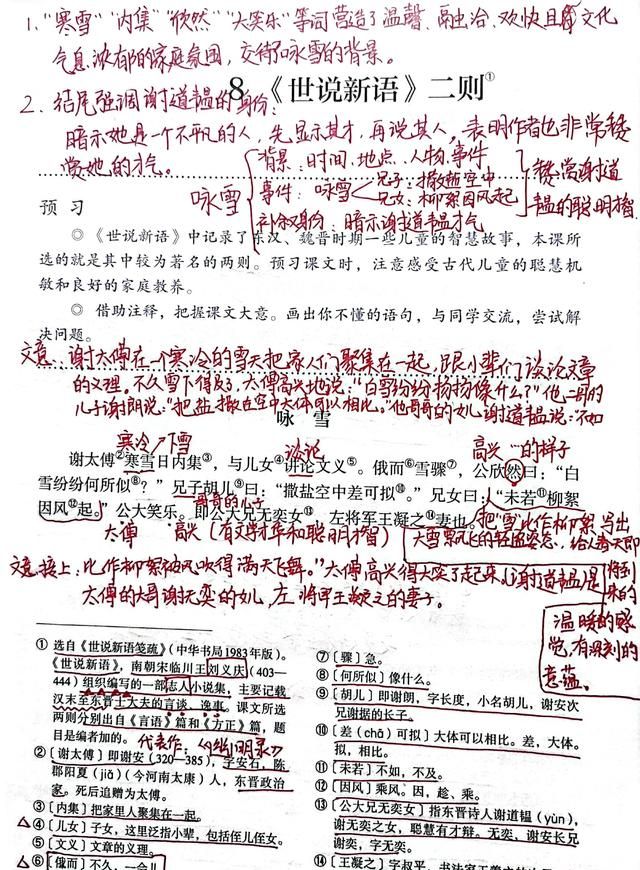 1、“寒雪”“内集”“欣然”“大笑乐”等词营造了温馨、融洽、欢快且文化
气息浓郁的家庭氛围，交待了咏雪的背景。
8 《世说新语》二则①
2、结尾强调谢道韫的身份：
暗示她是一个不平凡的人，先显示其才，再说其人，表明作者也非常赞
赏她的才气。
咏雪
背景：时间、地点、人物、事件
事件：咏雪
兄子：撒盐空中
兄女：柳絮因风起
补叙身份：暗示谢道韫才气
赞赏谢道
韫的聪明才智
预 习
◎ 《世说新语》中记录了东汉、魏晋时期一些儿童的智慧故事，本课所
选的就是其中较为著名的两则。预习课文时，注意感受古代儿童的聪慧机
敏和良好的家庭教养。
◎ 借助注释，把握课文大意。画出你不懂的语句，与同学交流，尝试解
决问题。
文意：谢太傅在一个寒冷的雪天把家人们聚集在一起，跟小辈们谈论文章
的义理。不久雪下得急了，太傅高兴地说：“白雪纷纷扬扬像什么？”他二哥的
儿子谢朗说：“把盐撒在空中大体可以相比。”他哥哥的女儿谢道韫说：“不如
咏 雪
寒冷 下雪 谈论 高兴 …的样子
谢太傅②寒雪日内集③，与儿女④讲论文义⑤。俄而⑥雪骤⑦，公欣然曰：“白
雪纷纷何所似⑧？”兄子胡儿⑨曰：“撒盐空中差可拟⑩。”兄女曰：“未若⑪柳絮
哥哥的儿子
因风⑫起。”公大笑乐。即公大兄无奕女⑬，左将军王凝之⑭妻也。
太傅 高兴（有文学才华和聪明才智）
把“雪”比作柳絮，写出
大雪飘飞的轻盈姿态，给人春天即
将到
来的
温暖的感
觉，有深刻的
意蕴。
文意接上：比作柳絮被风吹得满天飞舞。”太傅高兴得大笑了起来。（谢道韫）是
太傅的大哥谢无奕的女儿，左将军王凝之的妻子。
① 选自《世说新语笺疏》（中华书局1983年版）。
《世说新语》，南朝宋临川王刘义庆（403—
444）组织编写的一部志人小说集，主要记载
汉末至东晋士大夫的言谈、逸事。课文所选
两则分别出自《言语》篇和《方正》篇，题
目是编者加的。代表作：《幽明录》
②〔谢太傅〕即谢安（320—385），字安石，陈
郡阳夏（jiǎ）（今河南太康）人，东晋政治
家。死后追赠为太傅。
③〔内集〕把家里人聚集在一起。
④〔儿女〕子女，这里泛指小辈，包括侄儿侄女。
⑤〔文义〕文章的义理。
⑥〔俄而〕不久，一会儿
⑦〔骤〕急。
⑧〔何所似〕像什么。
⑨〔胡儿〕即谢朗，字长度，小名胡儿，谢安次
兄谢据的长子。
⑩〔差（chā）可拟〕大体可以相比。差，大体。
拟，相比。
⑪〔未若〕不如，不及。
⑫〔因风〕乘风。因，趁、乘。
⑬〔公大兄无奕女〕指东晋诗人谢道韫（yùn），
谢无奕之女，聪慧有才辩。无奕，谢安长兄
谢奕，字无奕。
⑭〔王凝之〕字叔平，书法家王羲之